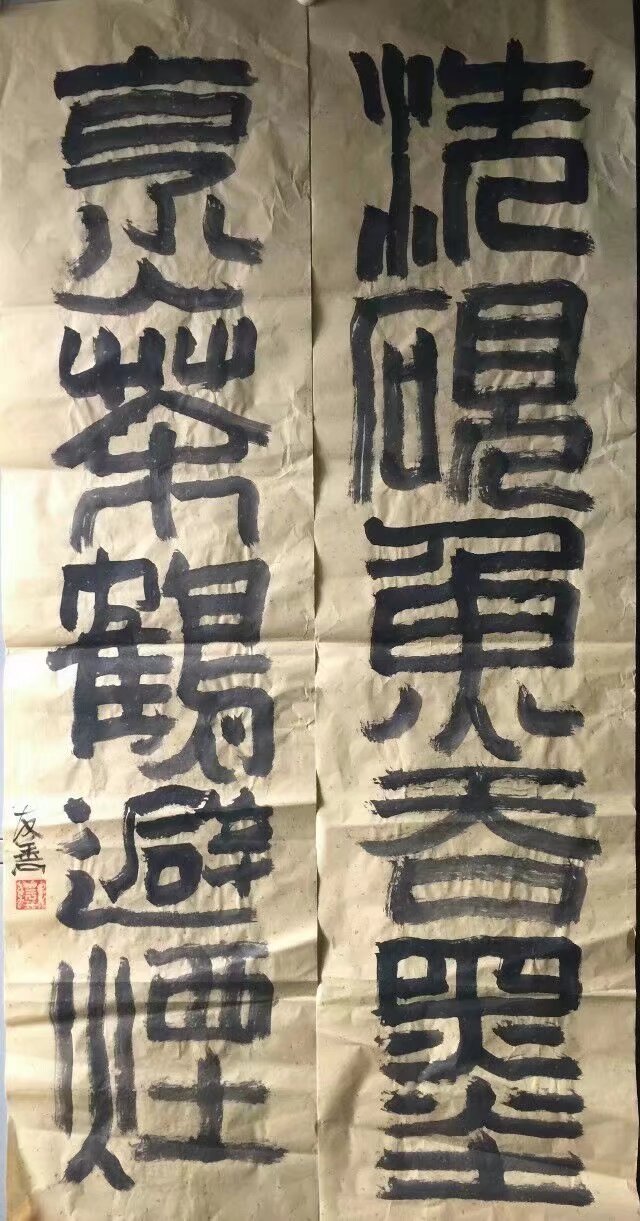 洗硯魚吞墨
烹茶鶴避煙
友善